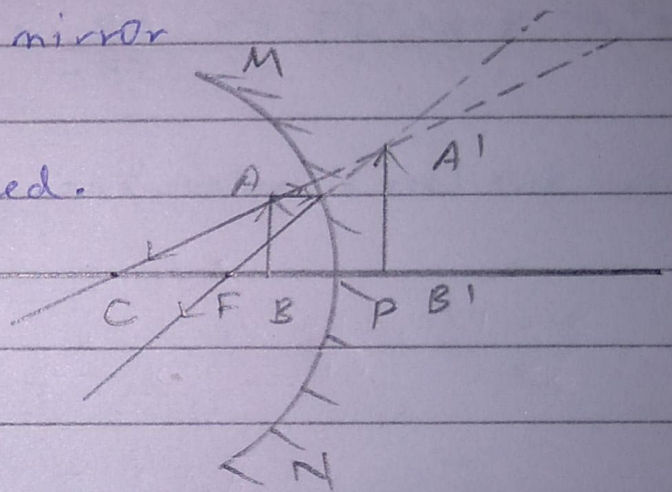 mirror
M
ed.
A A'
C F B P B'
N